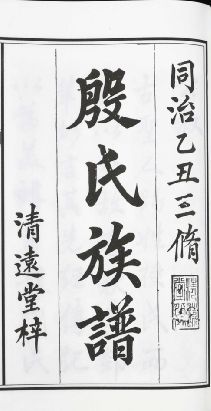 同治乙丑三脩
殷氏族譜
清遠堂梓